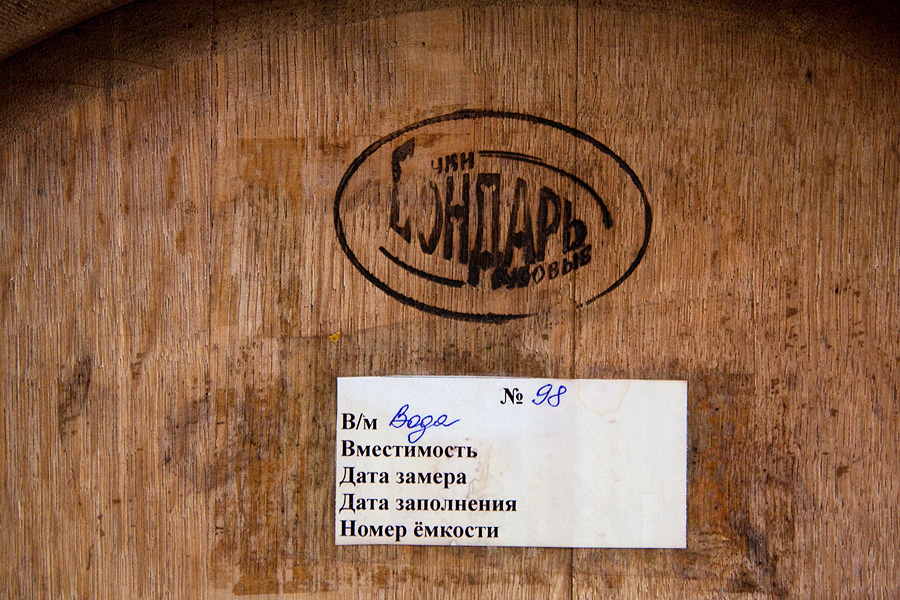 Бочки
БОНДАРЬ
дубовые
№ 98
В/м Вода
Вместимость
Дата замера
Дата заполнения
Номер ёмкости